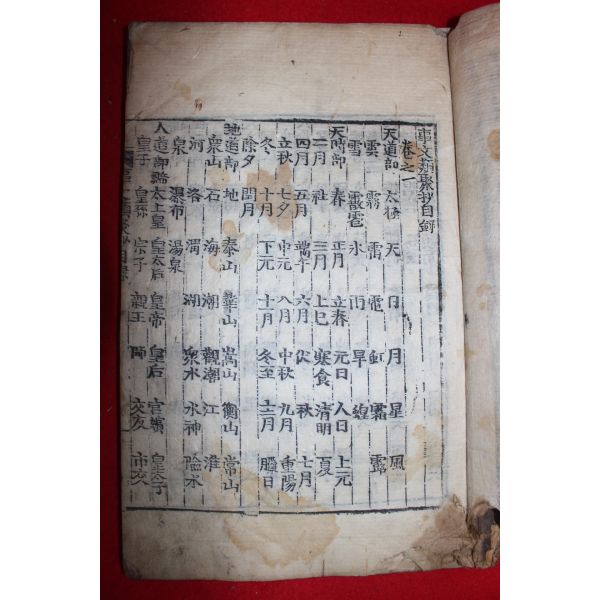 事文類聚抄目錄
卷之一
天道部 太極 天 日 月 星 風
雲 霧 雷 電 虹 霜 露
雪 霰雹 氷 雨 旱 蝗
天時部 春 正月 立春 元日 人日 上元
二月 社 三月 上巳 寒食 清明 夏
四月 五月 端午 六月 伏 秋 七月
立秋 七夕 中元 八月 中秋 九月 重陽
冬 十月 下元 十一月 冬至 十二月 臘日
除夕 閏月
地道部 地 泰山 華山 嵩山 衡山 常山
衆山 石 海 潮 觀潮 江 淮
河 洛 渭 湖 衆水 水神 險水
泉 瀑布 湯泉
人道部 太上皇 皇太后 皇帝 皇后 宮嬪 皇太子
皇子 皇孫 宗子 親王 師 交友 市交